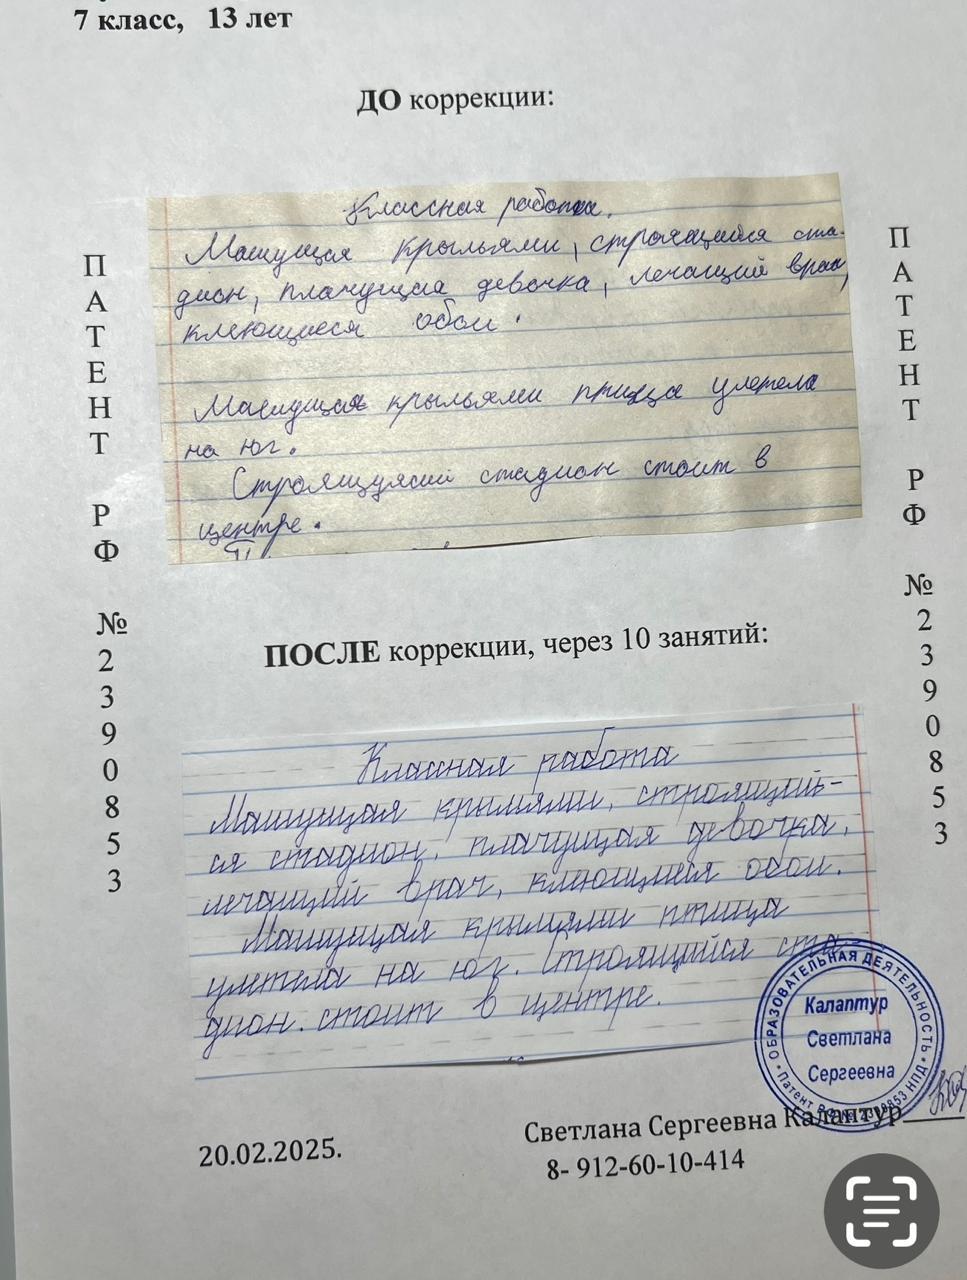 7 класс, 13 лет
ДО коррекции:
Классная работа.
Машущая крыльями, строящийся ста-
дион, плачущая девочка, лечащий врач,
клеющиеся обои.
Машущая крыльями птица улетела
на юг.
Строящуяся стадион стоит в
центре.
ПОСЛЕ коррекции, через 10 занятий:
Классная работа
Машущая крыльями, строящий-
ся стадион, плачущая девочка,
лечащий врач, клеющиеся обои.
Машущая крыльями птица
улетела на юг. Строящийся ста-
дион. стоит в центре.
ПАТЕНТ РФ №2390853
ПАТЕНТ РФ №2390853
ОБРАЗОВАТЕЛЬНАЯ ДЕЯТЕЛЬНОСТЬ
Калаптур
Светлана
Сергеевна
Патент РФ № 2390853 НПД
Светлана Сергеевна Калаптур
20.02.2025.
8- 912-60-10-414